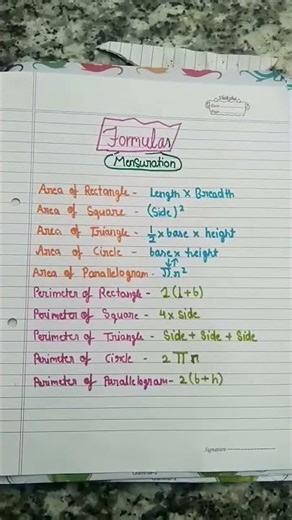 Formulas
Mensuration
Area of Rectangle - Length × Breadth
Area of Square - (Side)²
Area of Triangle - 1/2 × base × height
Area of Circle - base × height
Area of Parallelogram - πr²
Perimeter of Rectangle - 2(l+b)
Perimeter of Square - 4 × side
Perimeter of Triangle - Side + Side + Side
Perimeter of Circle - 2πr
Perimeter of Parallelogram - 2(b+h)
Signature